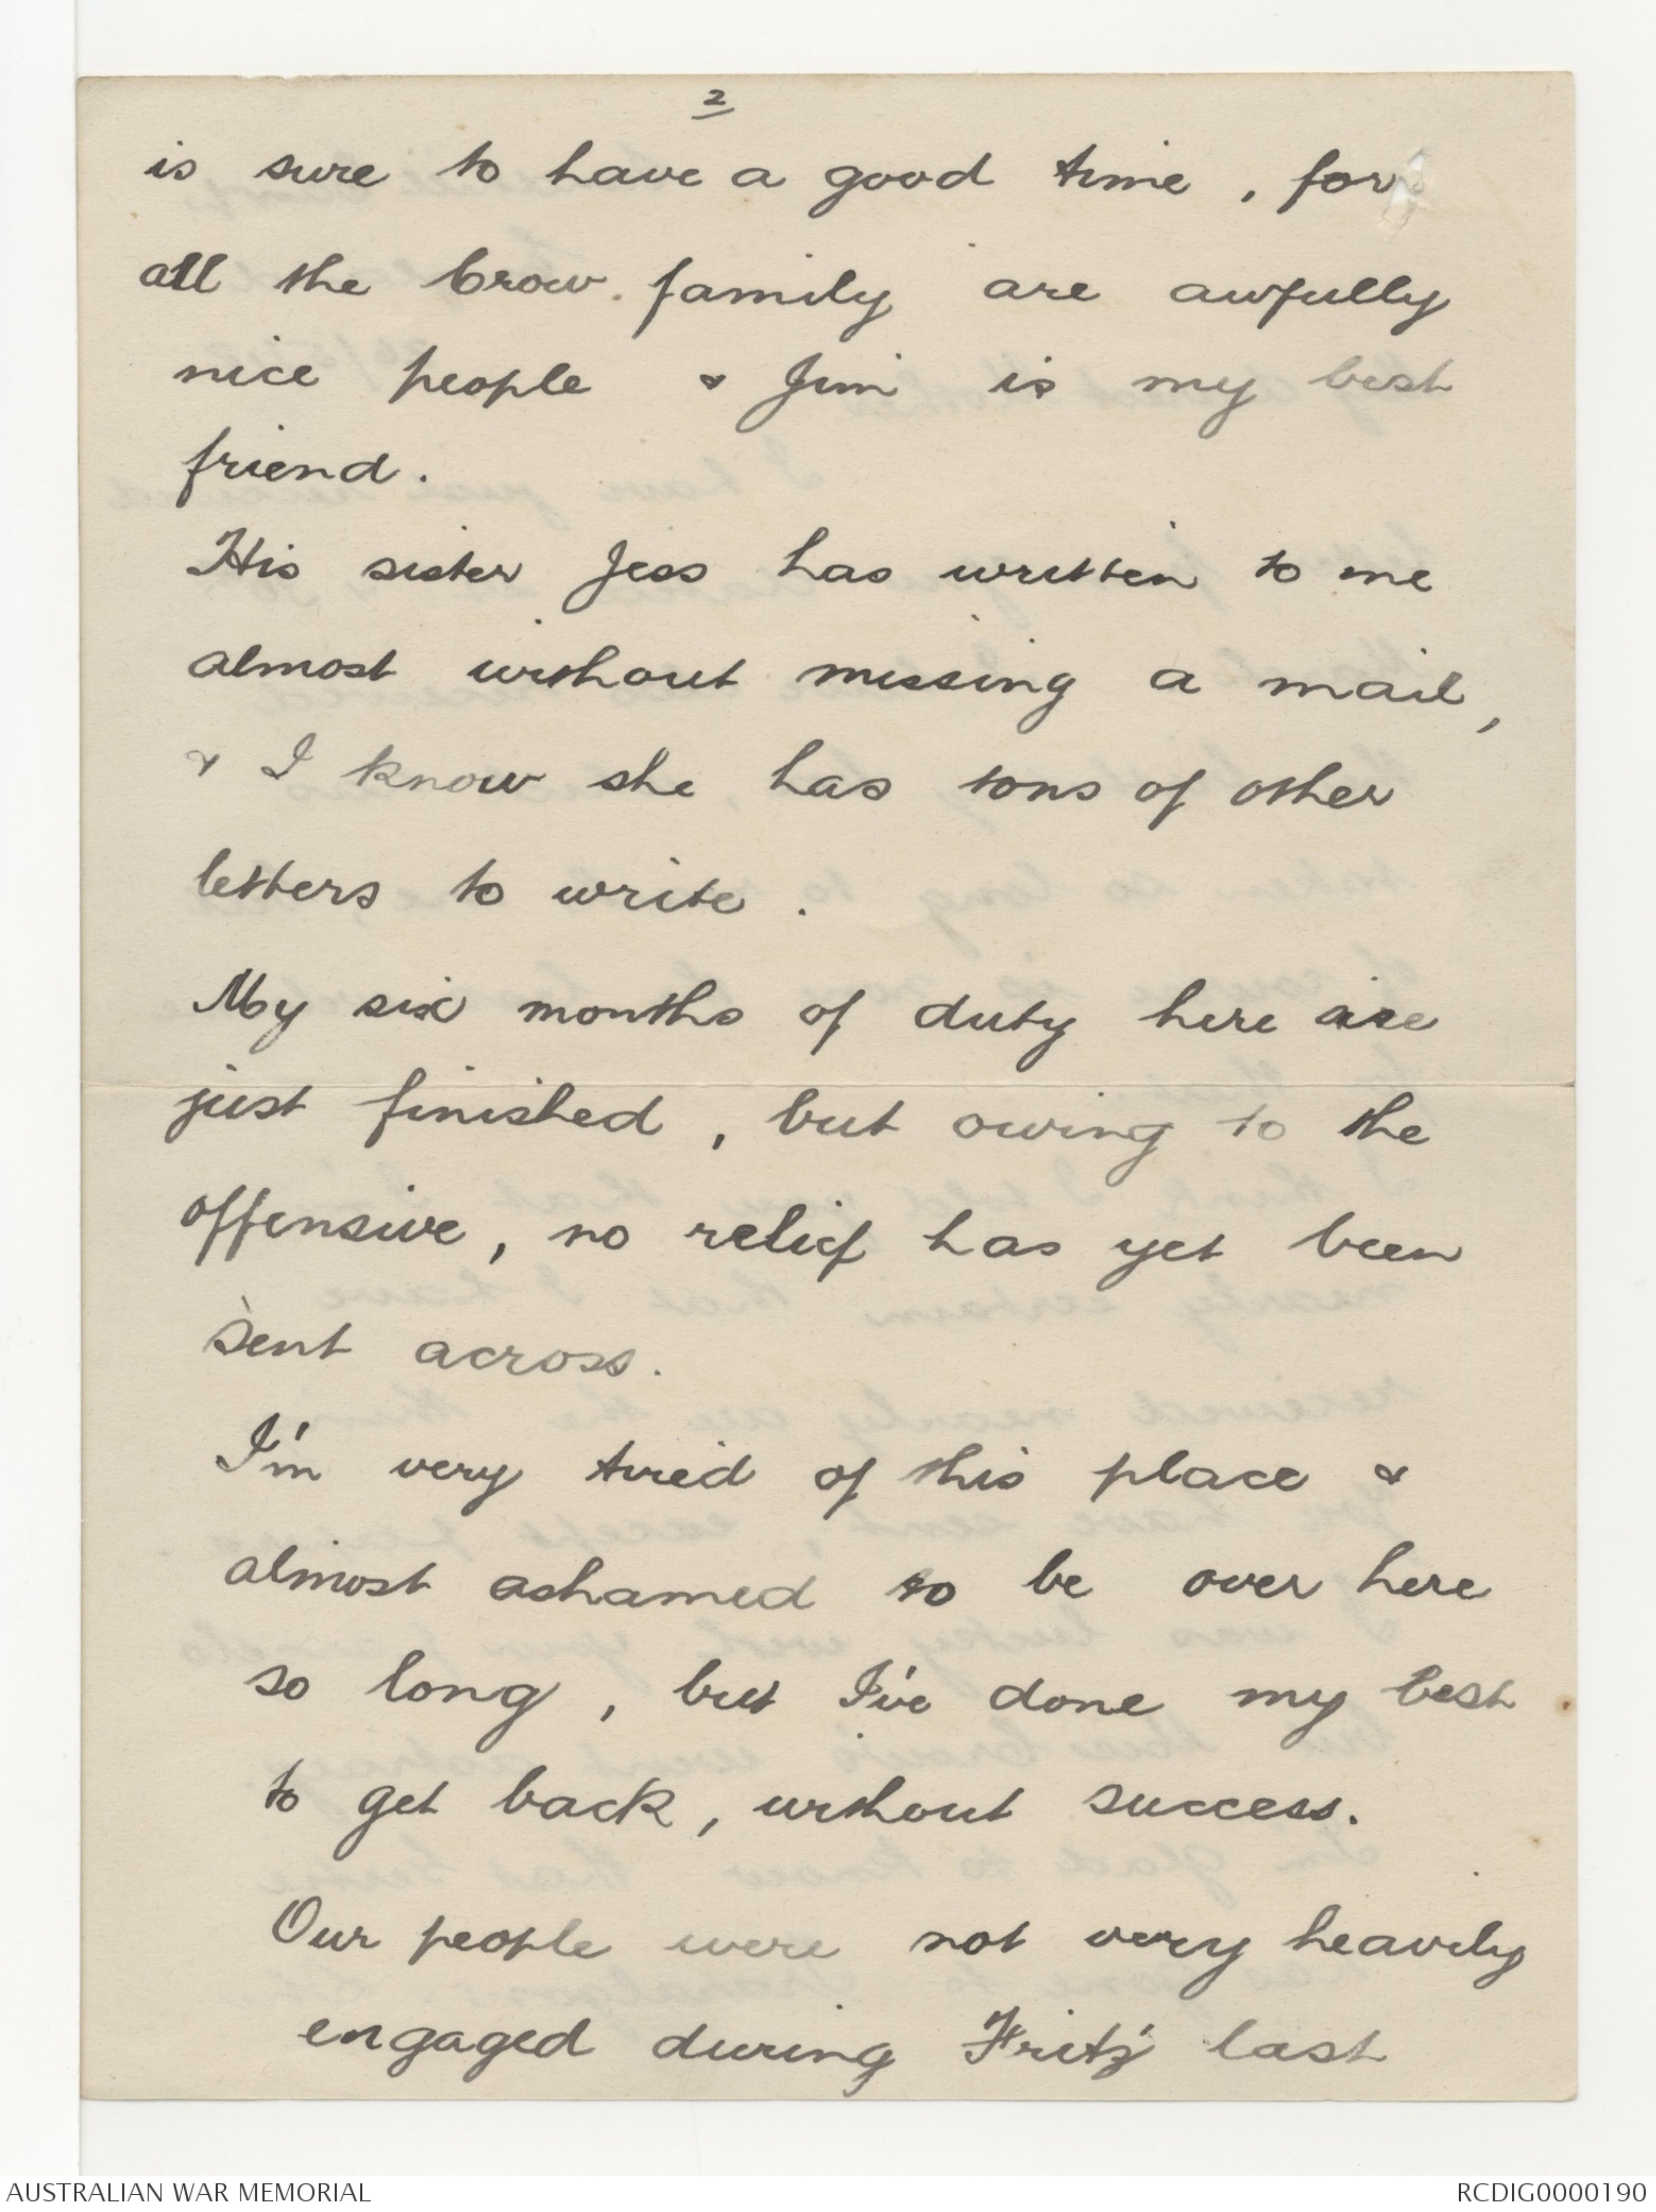 2
is sure to have a good time, for
all the Crow. family are awfully
nice people & Jim is my best
friend.
His sister Jess has written to me
almost without missing a mail,
& I know she has tons of other
letters to write.
My six months of duty here are
just finished, but owing to the
offensive, no relief has yet been
sent across.
I'm very tired of this place &
almost ashamed to be over here
so long, but I've done my best
to get back, without success.
Our people were not very heavily
engaged during Fritz' last
AUSTRALIAN WAR MEMORIAL
RCDIG0000190